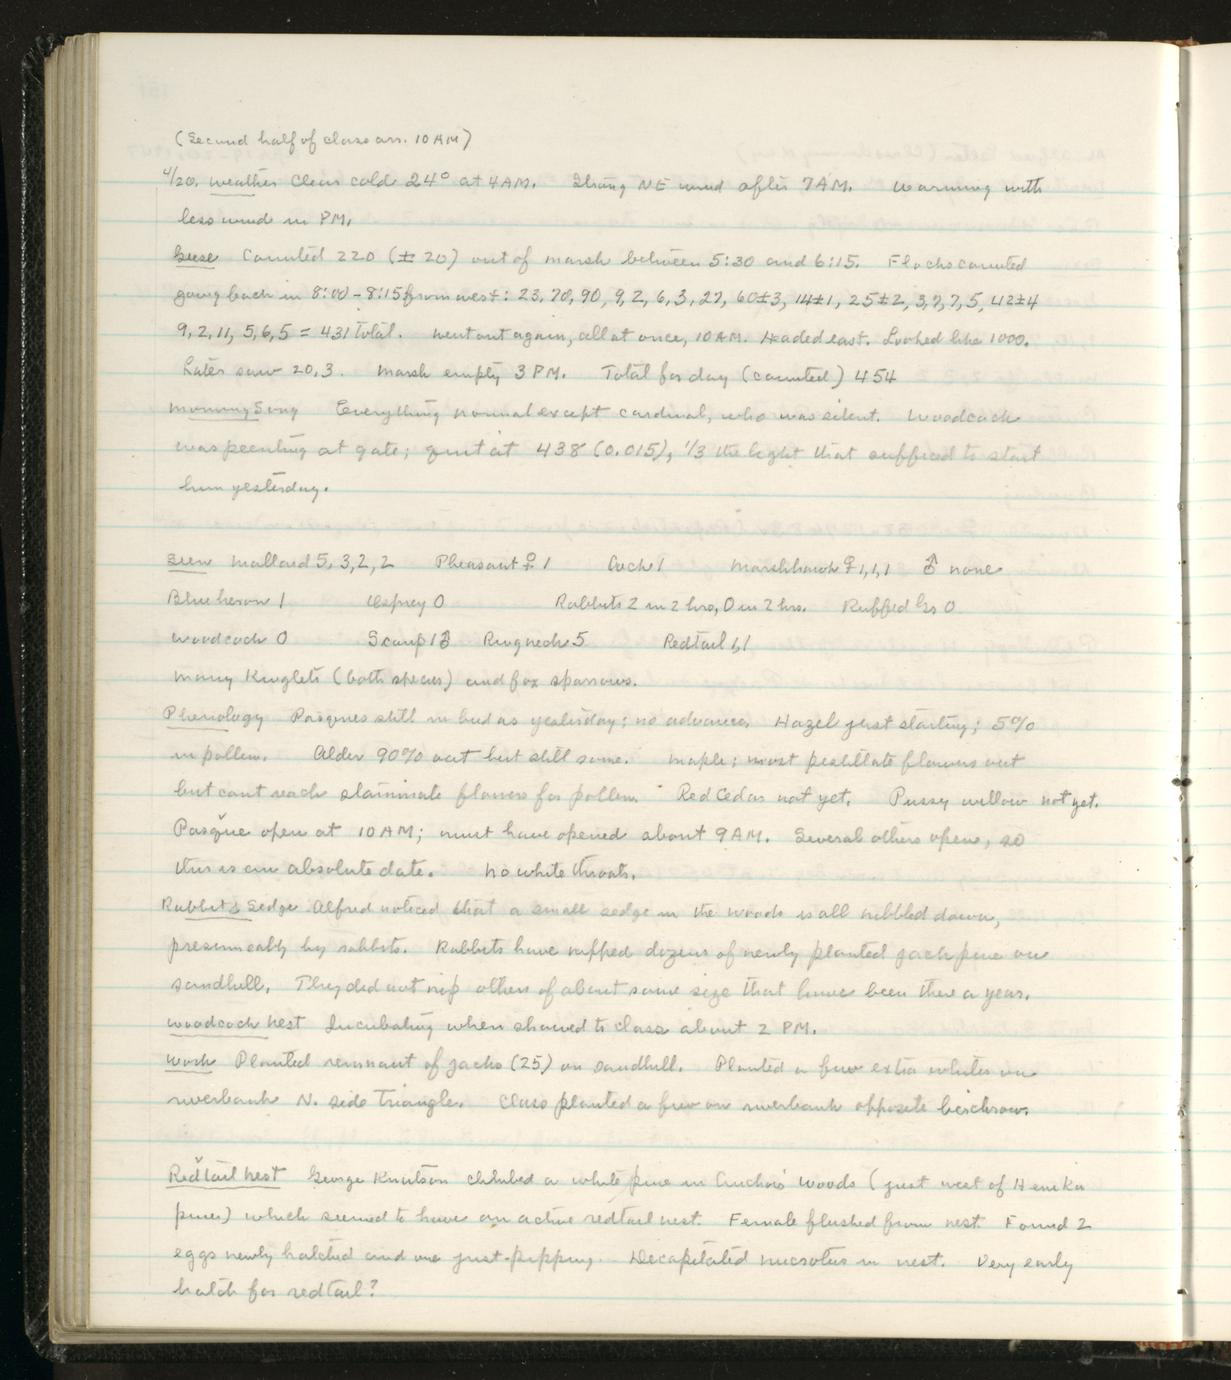 (Second half of class arr. 10 AM)
4/20. Weather Clear cold 24° at 4 AM. Strong NE wind after 7 AM. Warming with
less wind in PM.
Geese Counted 220 (± 20) out of marsh between 5:30 and 6:15. Flocks counted
going back in 8:00-8:15 from west: 23, 70, 90, 9, 2, 6, 3, 27, 60±3, 14±1, 25±2, 3, 7, 7, 5, 42±4
9, 2, 11, 5, 6, 5 = 431 total. Went out again, all at once, 10 AM. Headed east. Looked like 1000.
Later saw 20, 3. Marsh empty 3 PM. Total for day (counted) 454
Morning Song Everything normal except cardinal, who was silent. Woodcock
was peenting at gate; quit at 438 (0.015), 1/3 the light that sufficed to start
him yesterday.
Seen Mallard 5, 3, 2, 2 Pheasant ♀ 1 Cock 1 Marshhawk ♀ 1, 1, 1 ♂ none
Blue heron 1 Osprey 0 Rabbits 2 in 2 hrs, 0 in 2 hrs. Ruffed Gr 0
Woodcock 0 Scaup 1♂ Ringneck 5 Redtail 1, 1
Many Kinglets (both species) and fox sparrows.
Phenology Pasques still in bud as yesterday; no advance. Hazel just starting; 5%
in pollen. Alder 90% out but still some. Maple: most pistillate flowers out
but cant reach staminate flowers for pollen. Red Cedar not yet. Pussy willow not yet.
Pasque open at 10 AM; must have opened about 9 AM. Several others open, so
this is an absolute date. No white throats.
Rabbits & Sedge Alfred noticed that a small sedge in the woods is all nibbled down,
presumeably by rabbits. Rabbits have nipped dozens of newly planted jack pine on
sandhill. They did not nip others of about same size that have been there a year.
Woodcock nest Incubating when showed to class about 2 PM.
Work Planted remnant of jacks (25) on sandhill. Planted a few extra whites on
riverbank N. side triangle. Class planted a few on riverbank opposite birchrow.
Redtail nest George Knutson climbed a white pine in woods (just west of
pines) which seemed to have an active redtail nest. Female flushed from nest. Found 2
eggs newly hatched and one just pipping. Decapitated microtus in nest. Very early
hatch for redtail?